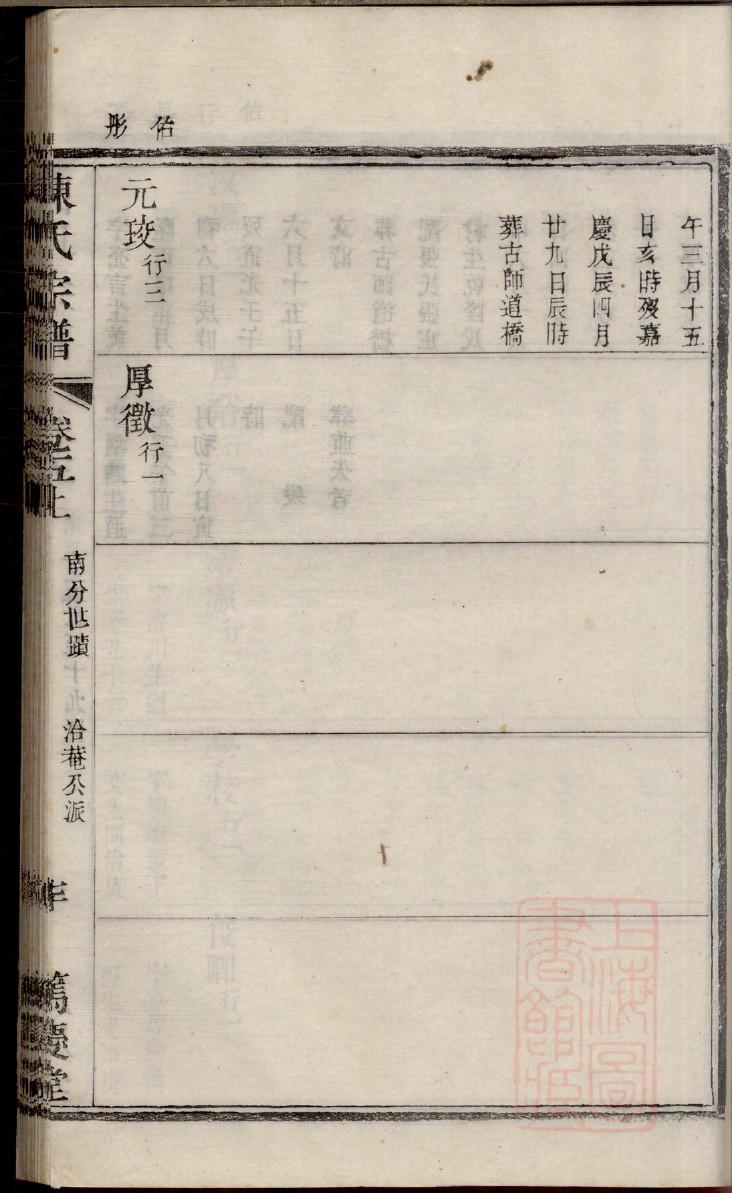 佑
彤
午三月十五
日亥時歿嘉
慶戊辰四月
廿九日辰時
葬古師道橋
元珓行三
厚徵行一
陳氏宗譜
卷之五上
南分世蹟
洽菴公派
篤慶堂
上海圖
書館藏